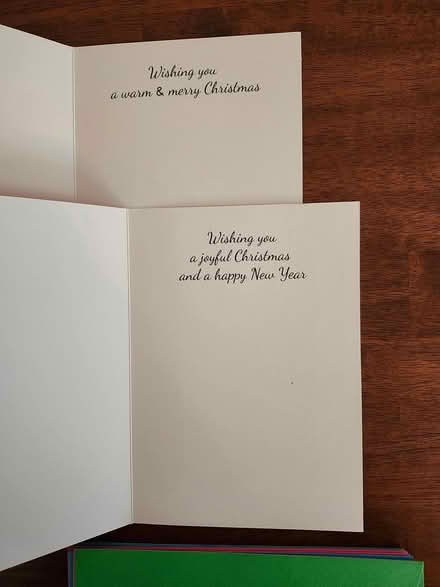 Wishing you
a warm & merry Christmas
Wishing you
a joyful Christmas
and a happy New Year